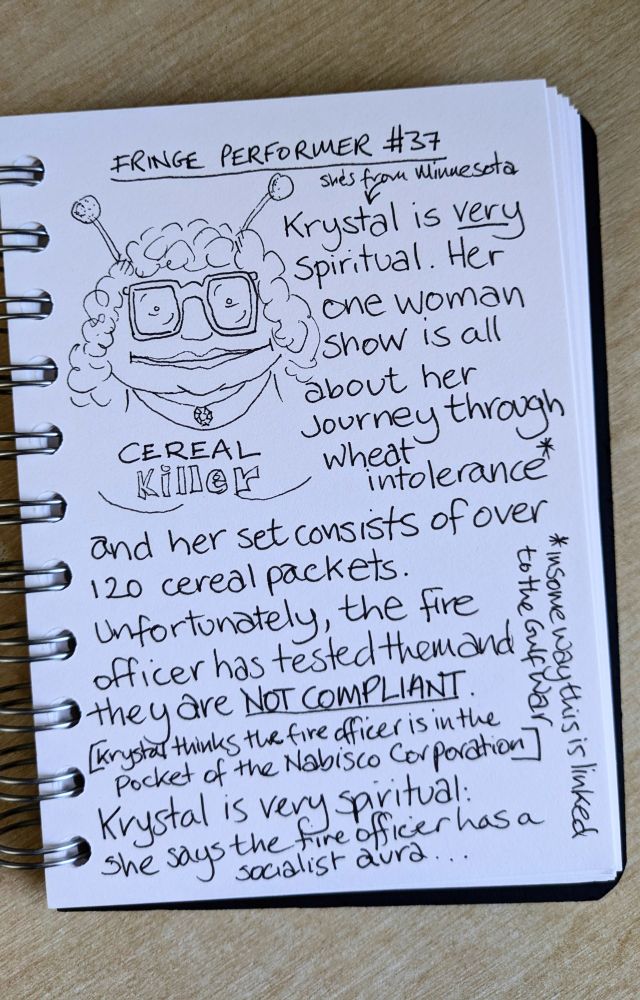 FRINGE PERFORMER #37
she's from Minnesota
Krystal is very
spiritual. Her
one woman
show is all
about her
Journey through
wheat
intolerance*
CEREAL
Killer
and her set consists of over
120 cereal packets.
Unfortunately, the fire
officer has tested them and
they are NOT COMPLIANT.
[Krystal thinks the fire officer is in the
pocket of the Nabisco Corporation]
Krystal is very spiritual:
she says the fire officer has a
socialist aura...
*in some way this is linked
to the Gulf War